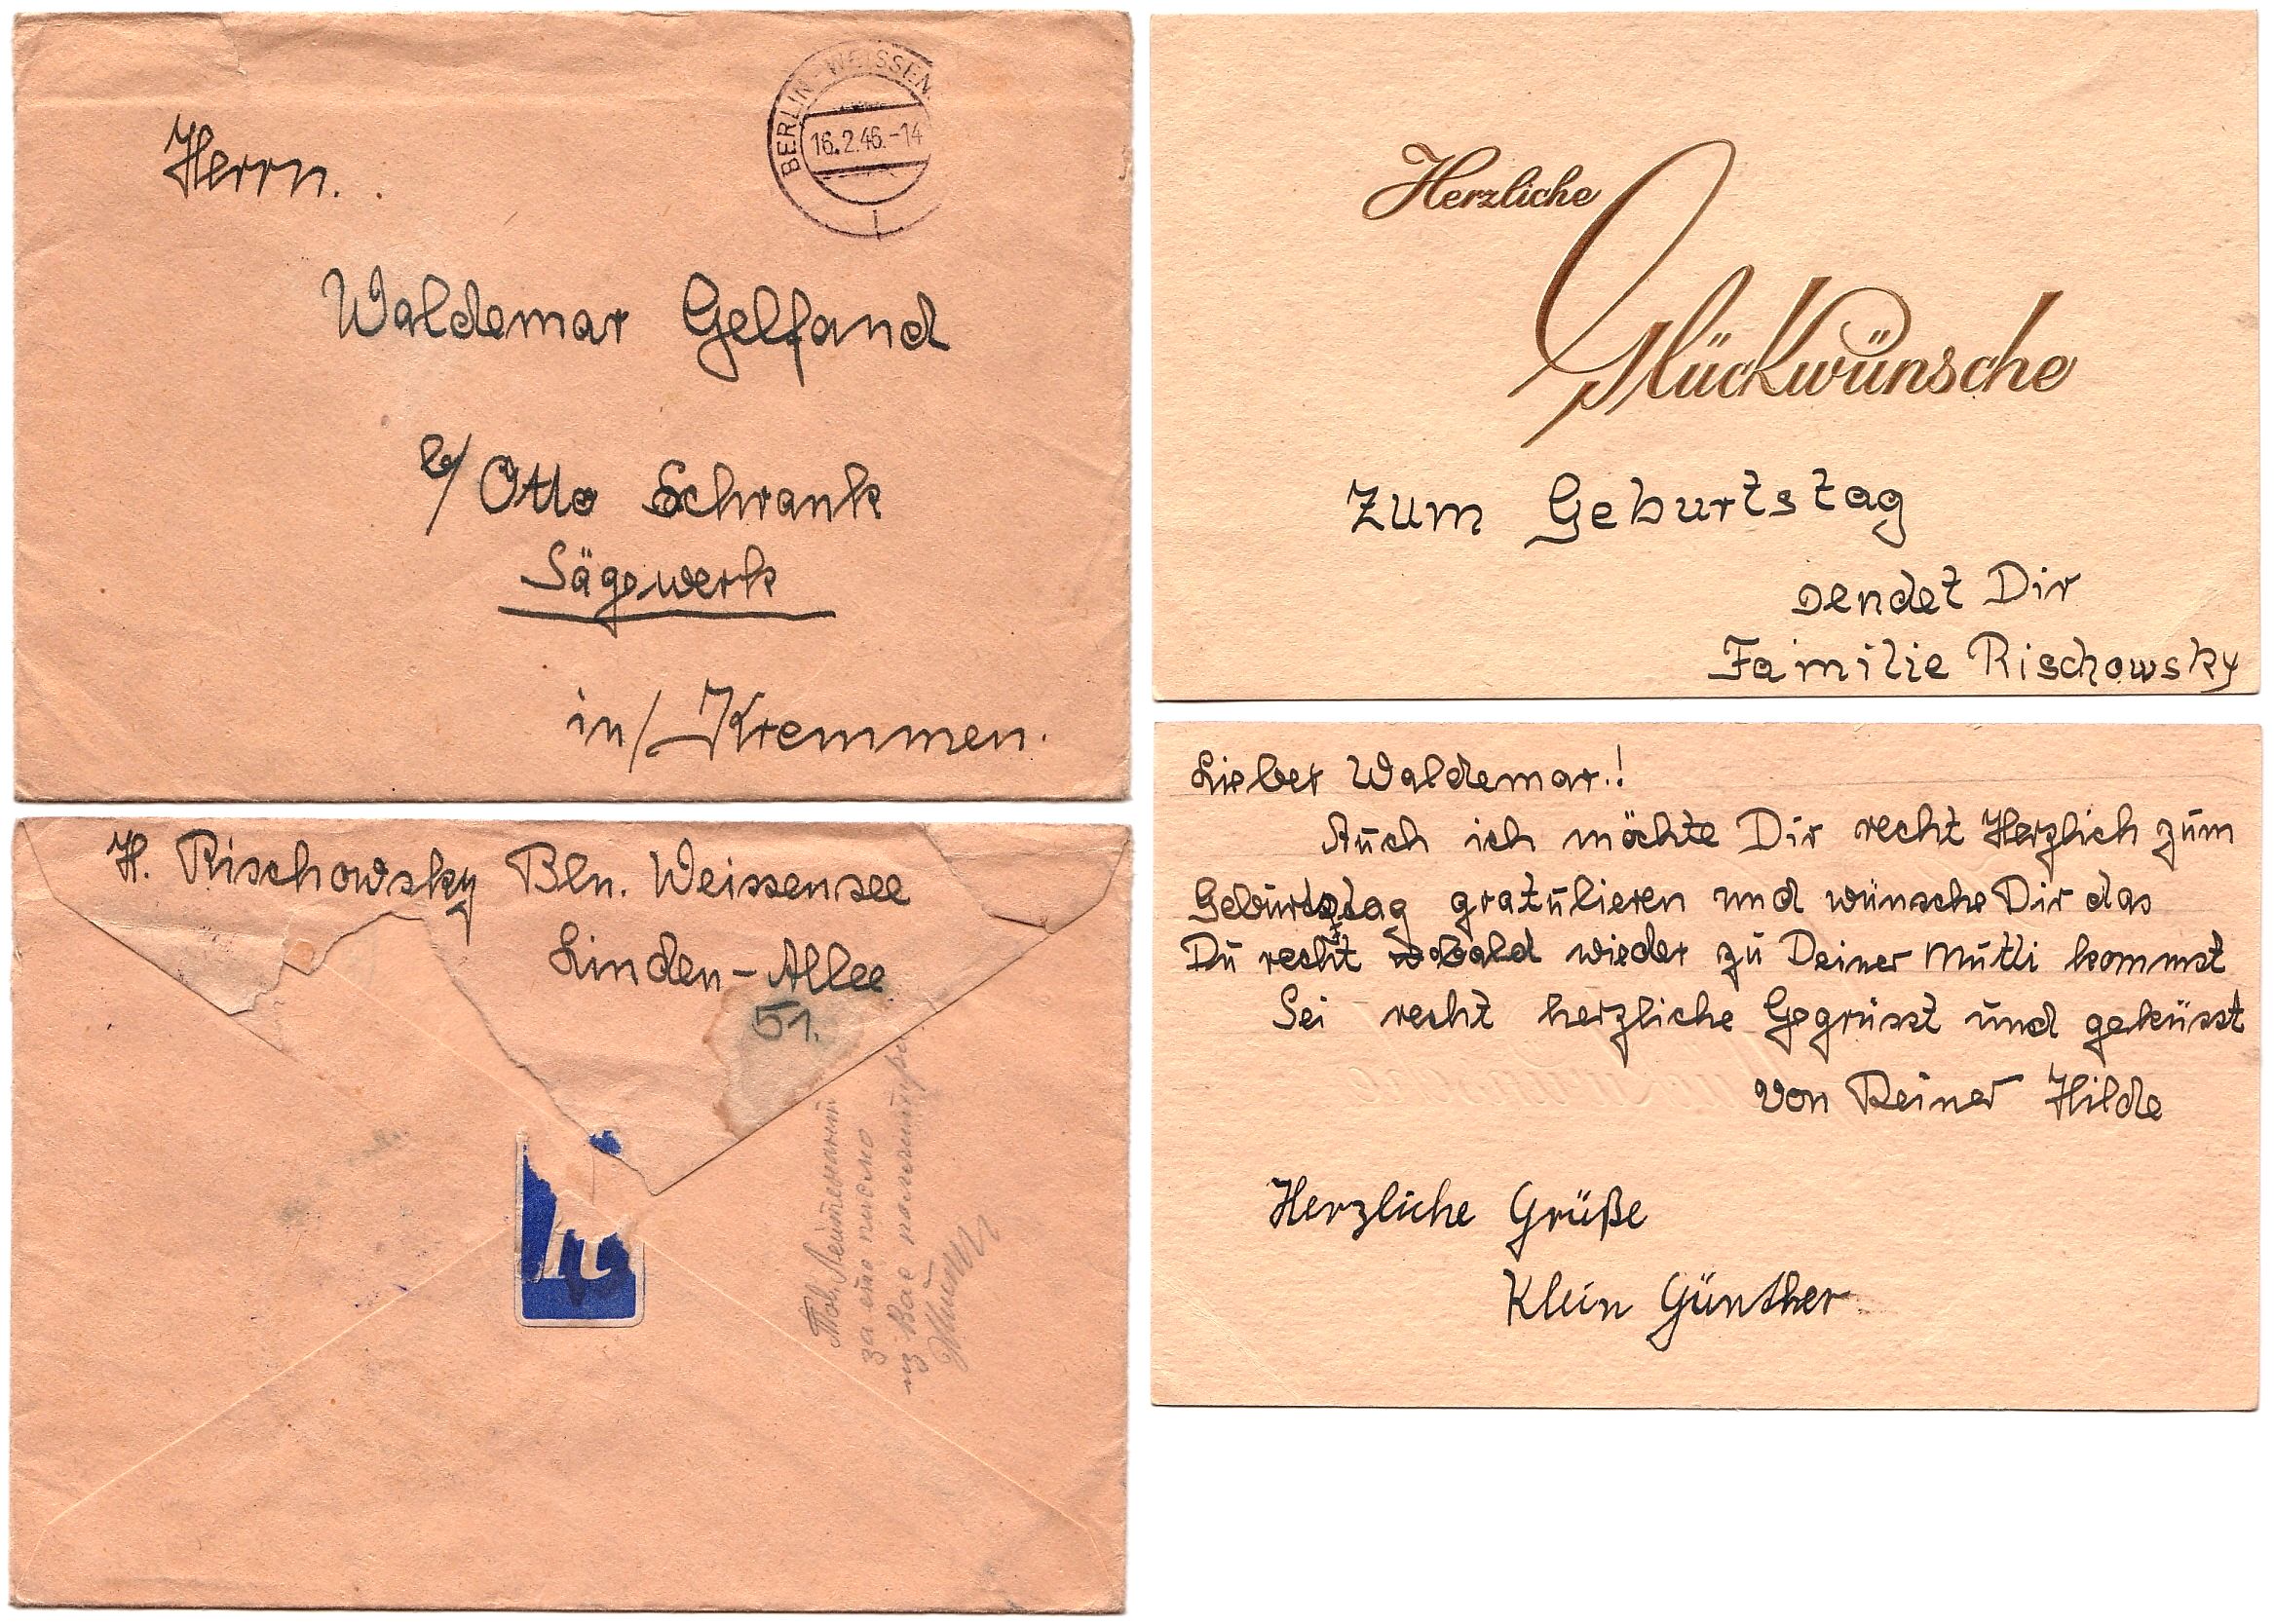 BERLIN-WEISSEN
16.2.46.-14
Herrn.
Waldemar Gelfand
b/ Otto Schrank
Sägewerk
in/ Kremmen.
H. Rischowsky Bln. Weissensee
Linden-Allee
51.
Тов. Лейтенант
за это письмо
из Вас
Herzliche
Glückwünsche
zum Geburtstag
sendet Dir
Familie Rischowsky
Lieber Waldemar.!
Auch ich möchte Dir recht Herzlich zum
Geburtstag gratulieren und wünsche Dir das
Du recht bald wieder zu Deiner Mutti kommst
Sei recht herzliche Gegrüsst und geküsst
von Deiner Hilde
Herzliche Grüße
Klein Günther